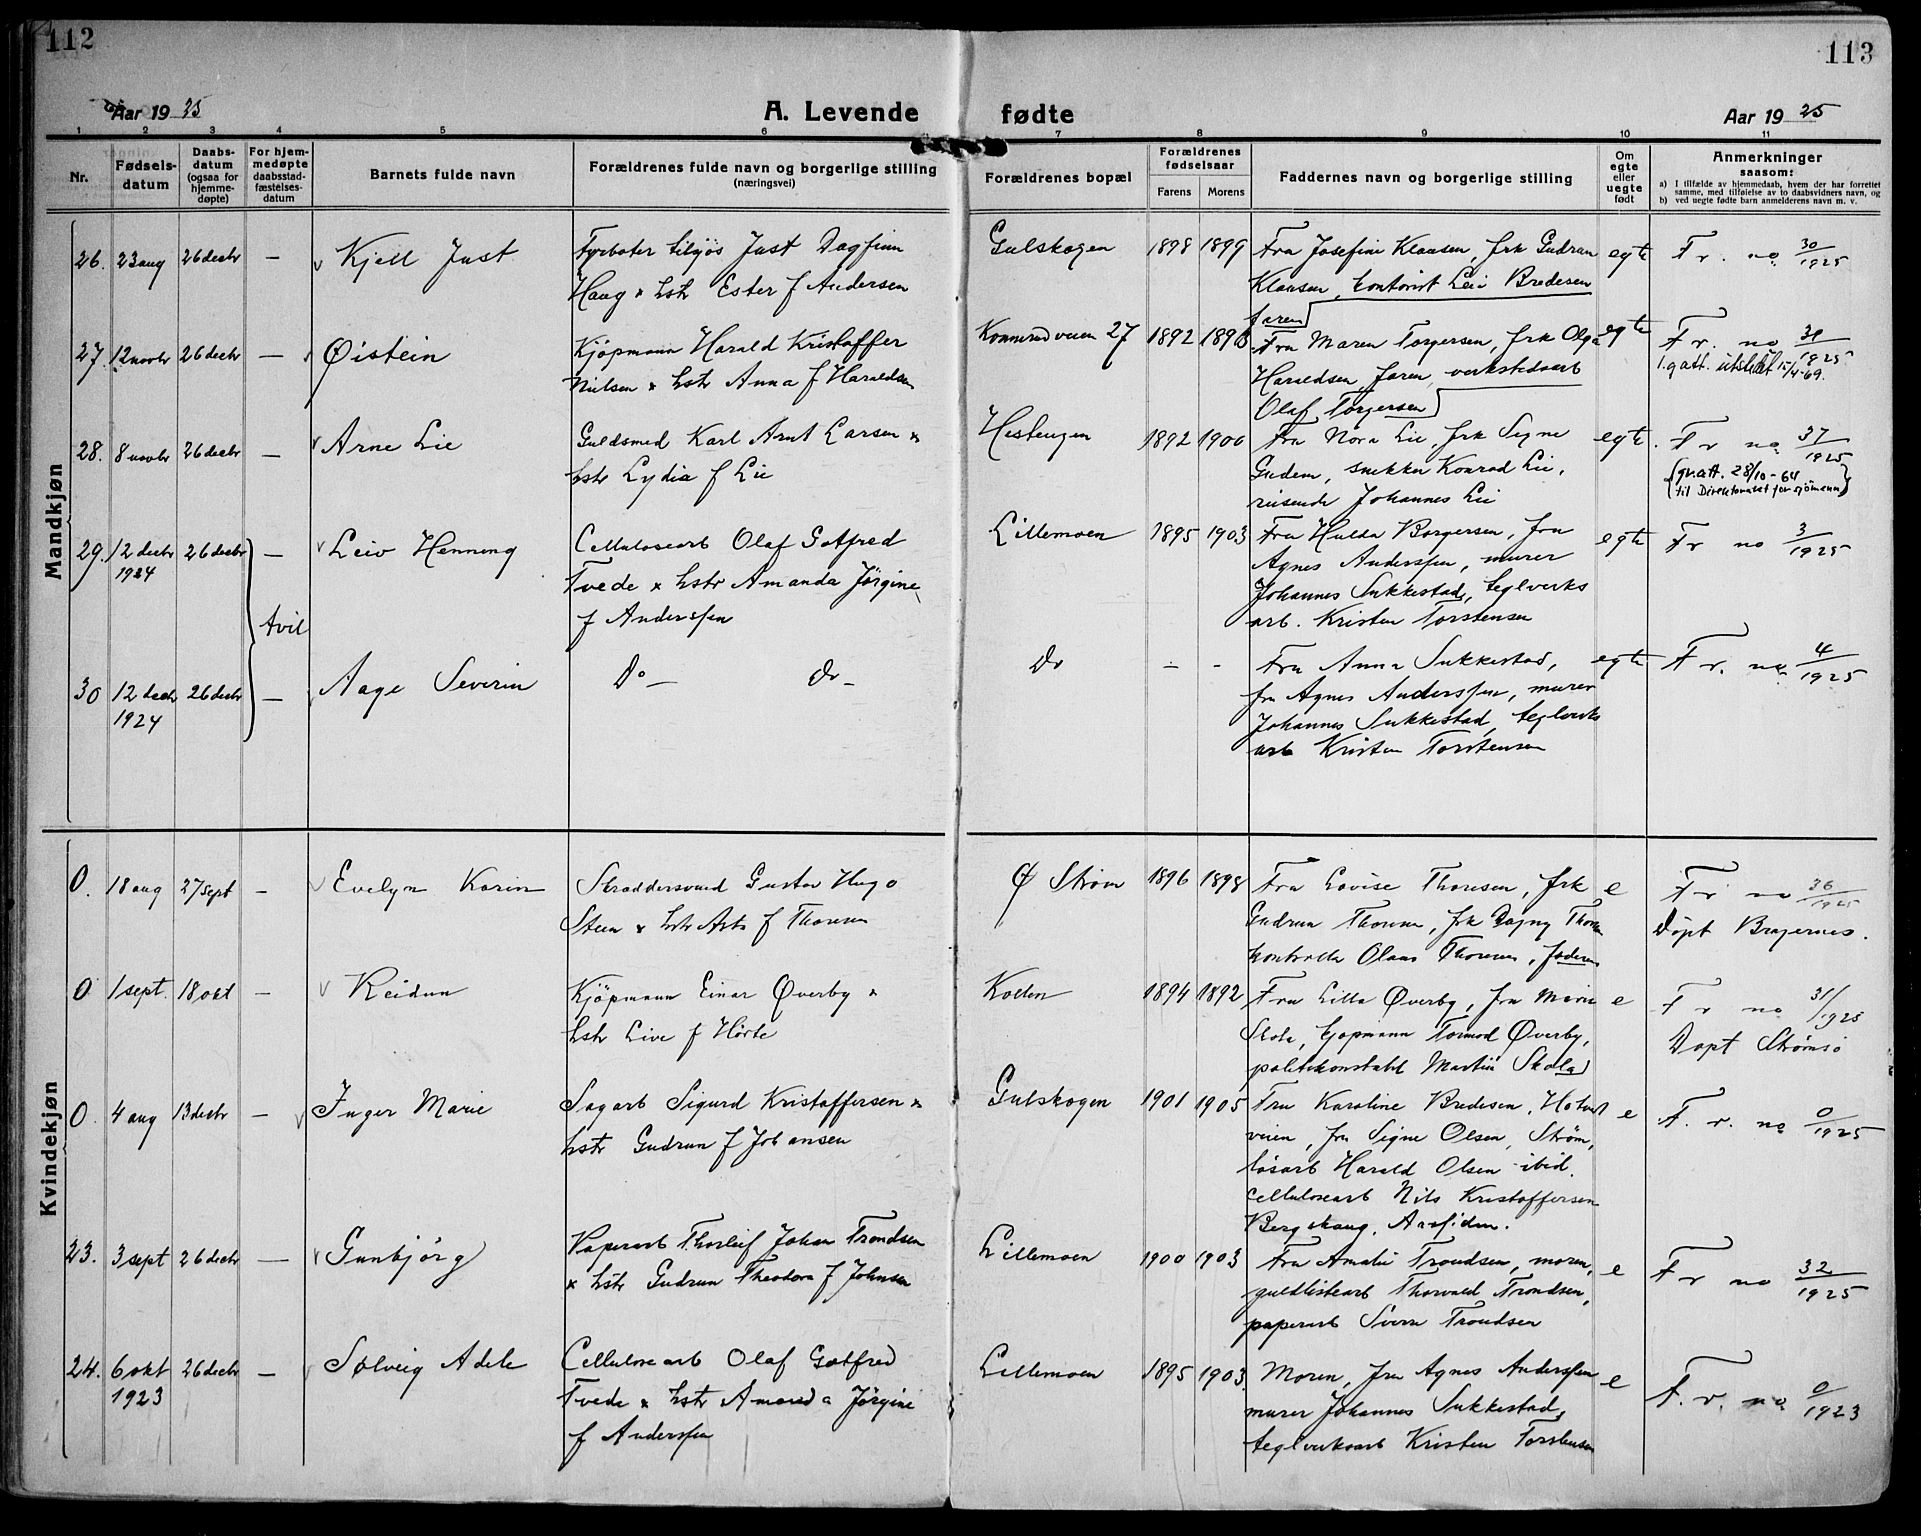 112
113
Aar 1925
A. Levende fødte
Aar 1925
1 2 3 4 5 6 7 8 9 10 11
Nr.
Fødsels-
datum
Daabs-
datum
(ogsaa for
hjemme-
døpte)
For hjem-
medøpte
daabsstad-
fæstelses-
datum
Barnets fulde navn
Forældrenes fulde navn og borgerlige stilling
(næringsvei)
Forældrenes bopæl
Forældrenes
fødselsaar
Farens Morens
Faddernes navn og borgerlige stilling
Om
egte
eller
uegte
født
Anmerkninger
saasom:
a) I tilfælde av hjemmedaab, hvem der har forrettet
samme, med tilføielse av to daabsvidners navn, og
b) ved uegte fødte barn anmelderens navn m. v.
Mandkjøn
26. 23 aug 26 decbr — Kjell Just Fyrbøter tilsjös Just Dagfinn Gulskogen 1898 1899 Fru Josefine Klausen, frk Gudrun egte F r. no 30/1925
Haug & hstr Ester f Andersen Klausen, kontorist Leiv Bredesen
faren
27. 12 novbr 26 decbr — Øistein Kjöpmann Harald Kristoffer Konnerudveien 27 1892 Fru Maren Torgersen, frk Olga egte F r. no 31/1925
Nielsen & hstr Anna f Haraldsen Haraldsen, faren, verkstedsarb f.att. utstedt 15/4-69.
Olaf Torgersen
28. 8 novbr 26 decbr — Arne Lie Guldsmed Karl Arnt Larsen & Hestengen 1892 1900 Fru Nora Lie, frk Signe egte. F r no 37/1925
hstr Lydia f Lie Gudem, snekker Konrad Lie, (gr.att. 28/10-64
reisende Johannes Lie til Direktoratet for sjömenn)
29. 12 decbr 26 decbr — Leiv Henning Cellulosearb Olaf Gotfred Lillemoen 1895 1903 Fru Hulda Borgersen, fru egte F r no 3/1925
1924 Tvede & hstr Amanda Jørgine Agnes Anderssen, murer
f Anderssen Johannes Sukkestad, teglverks
tvil
arb. Kristen Torstensen
30 12 decbr 26 decbr — Aage Severin Do — Do — Do - - Fru Anna Sukkestad, egte F r. no 4/1925
1924 fru Agnes Anderssen, murer
Johannes Sukkestad, teglverks
arb Kristen Torstensen
Kvindekjøn
0. 18 aug 27 sept — Evelyn Karin Skræddersvend Gustav Hugo Ø Strøm 1896 1898 Fru Lovise Thoresen, frk e F r no 36/1925
Steen & hstr Asta f Thoresen Gudrun Thoresen, frk Dagny Thoresen Döpt Bragernes.
kontrollør Olaus Thoresen, faderen
0 1 sept. 18 okt — Reidun Kjöpmann Einar Øverby & Kollen 1894 1892 Fru Lilla Øverby, fru Marie e F r no 31/1925
hstr Live f Hörte Skola, kjøpmann Tormod Øverby, Döpt Strømsö
politikonstabel Martin Skola
0. 4 aug 13 decbr — Inger Marie Sagarb Sigurd Kristoffersen & Gulskogen 1901 1905 Fru Karoline Bredesen, Hotvet e F. r. no 0/1925
hstr Gudrun f Johansen veien, fru Signe Olsen, Strøm,
løsarb Harald Olsen ibid.
Cellulosearb Nils Kristoffersen
Berg skaug, Aassiden.
23. 3 sept 26 decbr — Gunbjörg Papirarb Thorleif Johan Trondsen Lillemoen 1900 1903 Fru Amalie Trondsen, moren, e F r no 32/1925
& hstr Gudrun Theodora f Johnsen guldlistearb Thorvald Trondsen,
papirarb Sverre Trondsen
24. 6 okt 26 decbr — Solveig Adele Cellulosearb Olaf Gotfred Lillemoen 1895 1903. Moren, fru Agnes Anderssen e F. r. no 0/1923
1923 Tvede & hstr Amanda Jørgine murer Johannes Sukkestad,
f Anderssen teglverksarb Kristen Torstensen